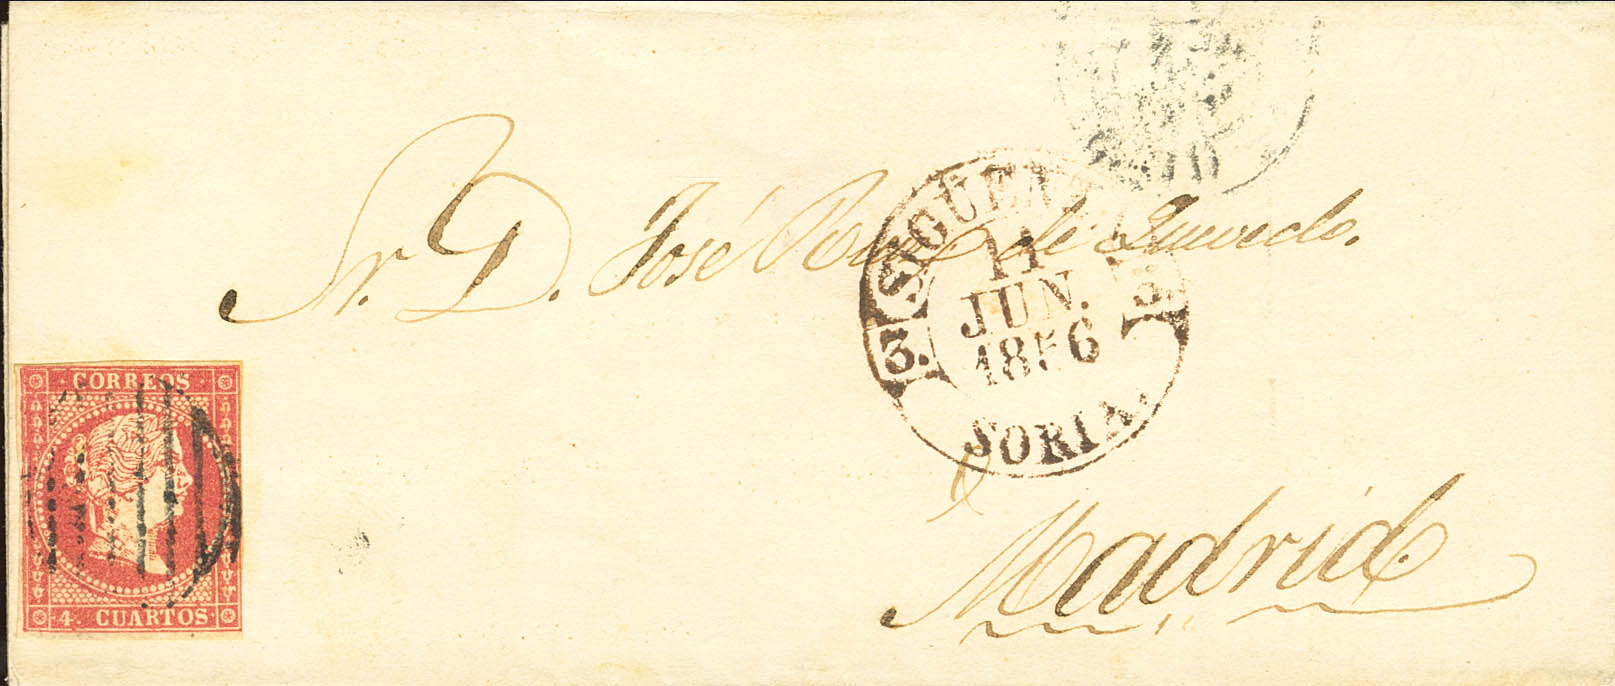 Sr. D. José Ruiz de Quevedo.
SIGÜENZA
11
JUN.
1856
3.
SORIA.
Madrid.
CORREOS
4 CUARTOS